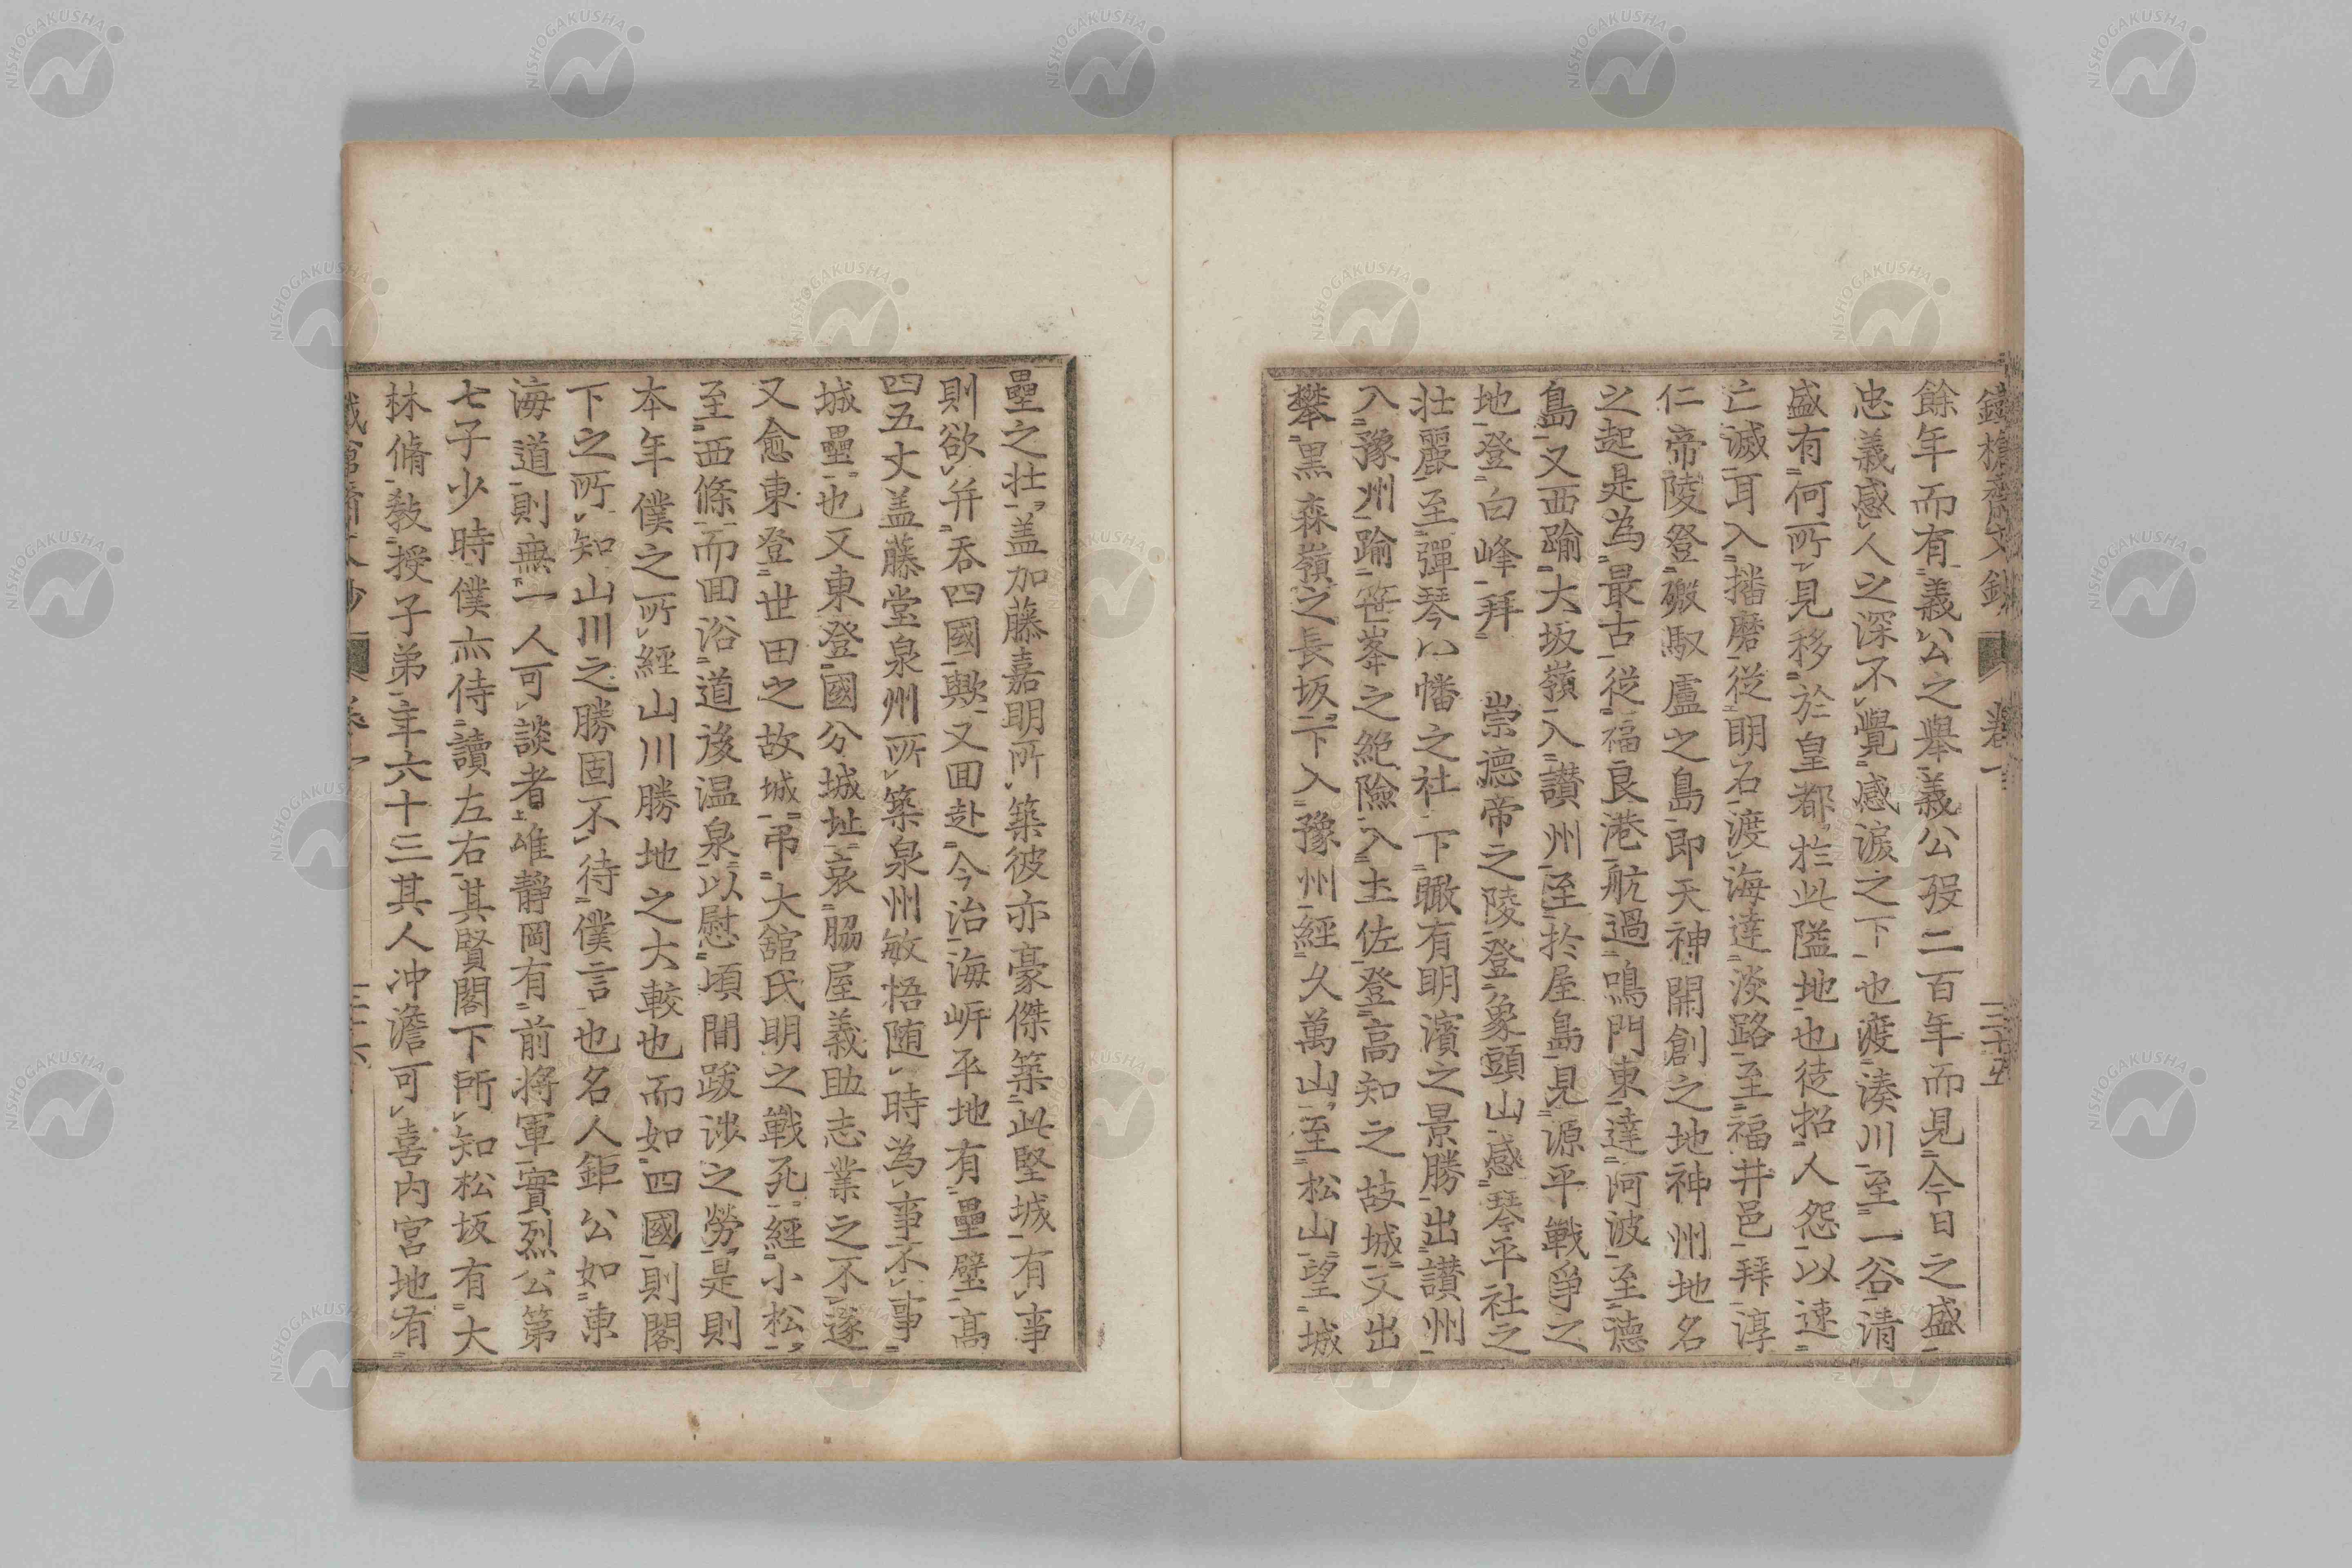 鐵槍齋文鈔 卷一 三十五
餘年而有義公之舉義公歿二百年而見今日之盛
忠義感人之深不覺感淚之下也渡湊川至一谷清
盛有何所見移於皇都於此隘地也徒招人怨以速
亡滅耳入播磨從明石渡海達淡路至福井邑拜淳
仁帝陵登磤馭盧之島即天神開創之地神州地名
之起是為最古從福良港航過鳴門東達阿波至德
島又西踰大坂嶺入讃州至於屋島見源平戰爭之
地登白峰拜 崇德帝之陵登象頭山感琴平社之
壯麗至彈琴八幡之社下瞰有明濱之景勝出讃州
入豫州踰笹峯之絕險入土佐登高知之故城又出
攀黑森嶺之長坂下入豫州經久萬山至松山望城
壘之壯蓋加藤嘉明所築彼亦豪傑築此堅城有事
則欲并吞四國歟又回赴今治海岍平地有壘壁高
四五丈蓋藤堂泉州所築泉州敏悟随時為事不事
城壘也又東登國分城址哀脇屋義助志業之不遂
又愈東登世田之故城弔大舘氏明之戰死經小松
至西條而回浴道後温泉以慰頃間跋涉之勞是則
本年僕之所經山川勝地之大較也而如四國則閣
下之所知山川之勝固不待僕言也名人鉅公如東
海道則無一人可談者唯靜岡有前將軍實烈公第
七子少時僕亦侍讀左右其賢閣下所知松坂有大
林脩敎授子弟年六十三其人冲澹可喜内宮地有